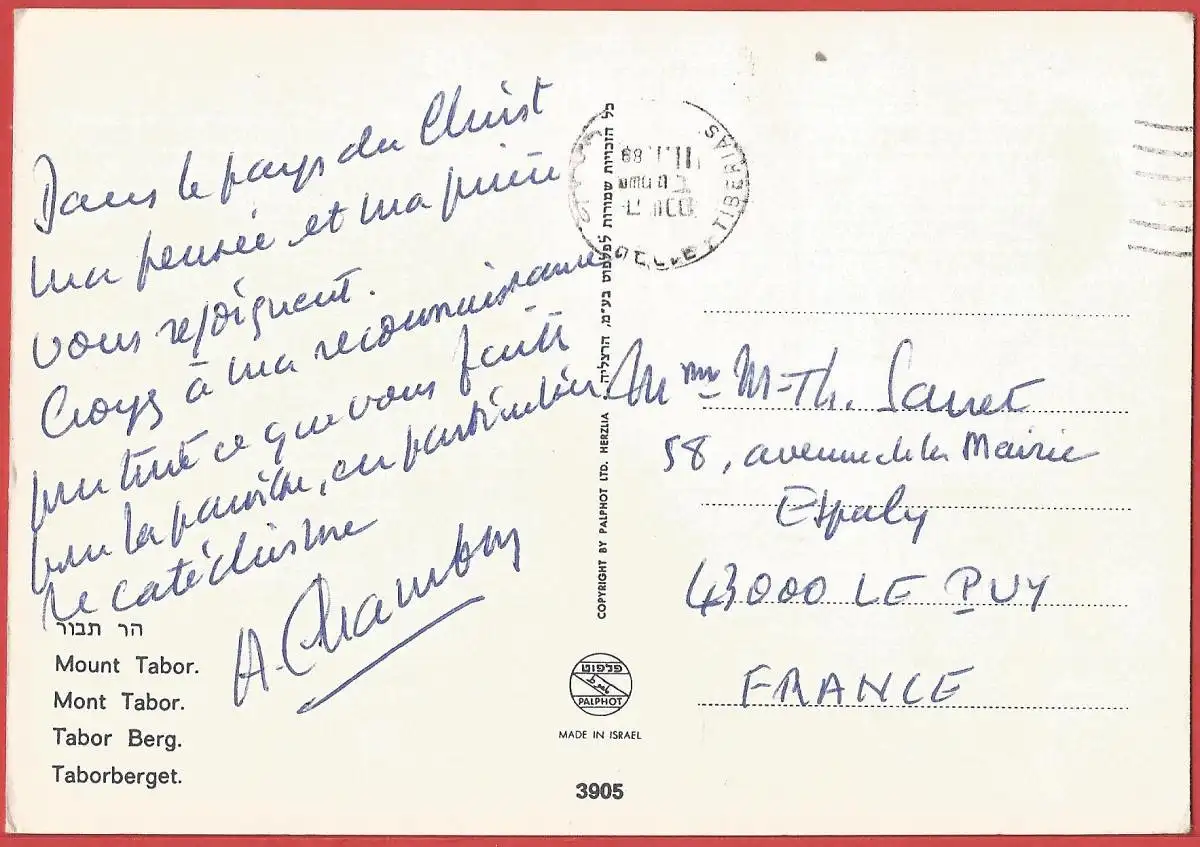 Dans le pays du Christ
ma pensée et ma prière
vous rejoignent.
Croyez à ma reconnaissance
pour tout ce que vous faites
pour la paroisse, en particulier
le catéchisme
A. Chambon
הר תבור
Mount Tabor.
Mont Tabor.
Tabor Berg.
Taborberget.
כל הזכויות שמורות לפלפוט בע"מ, הרצליה
COPYRIGHT BY PALPHOT LTD. HERZLIA
פלפוט
PALPHOT
MADE IN ISRAEL
3905
TIBERIAS
Mme M-Th.
58, avenue de la Mairie
Espaly
43000 LE PUY
FRANCE